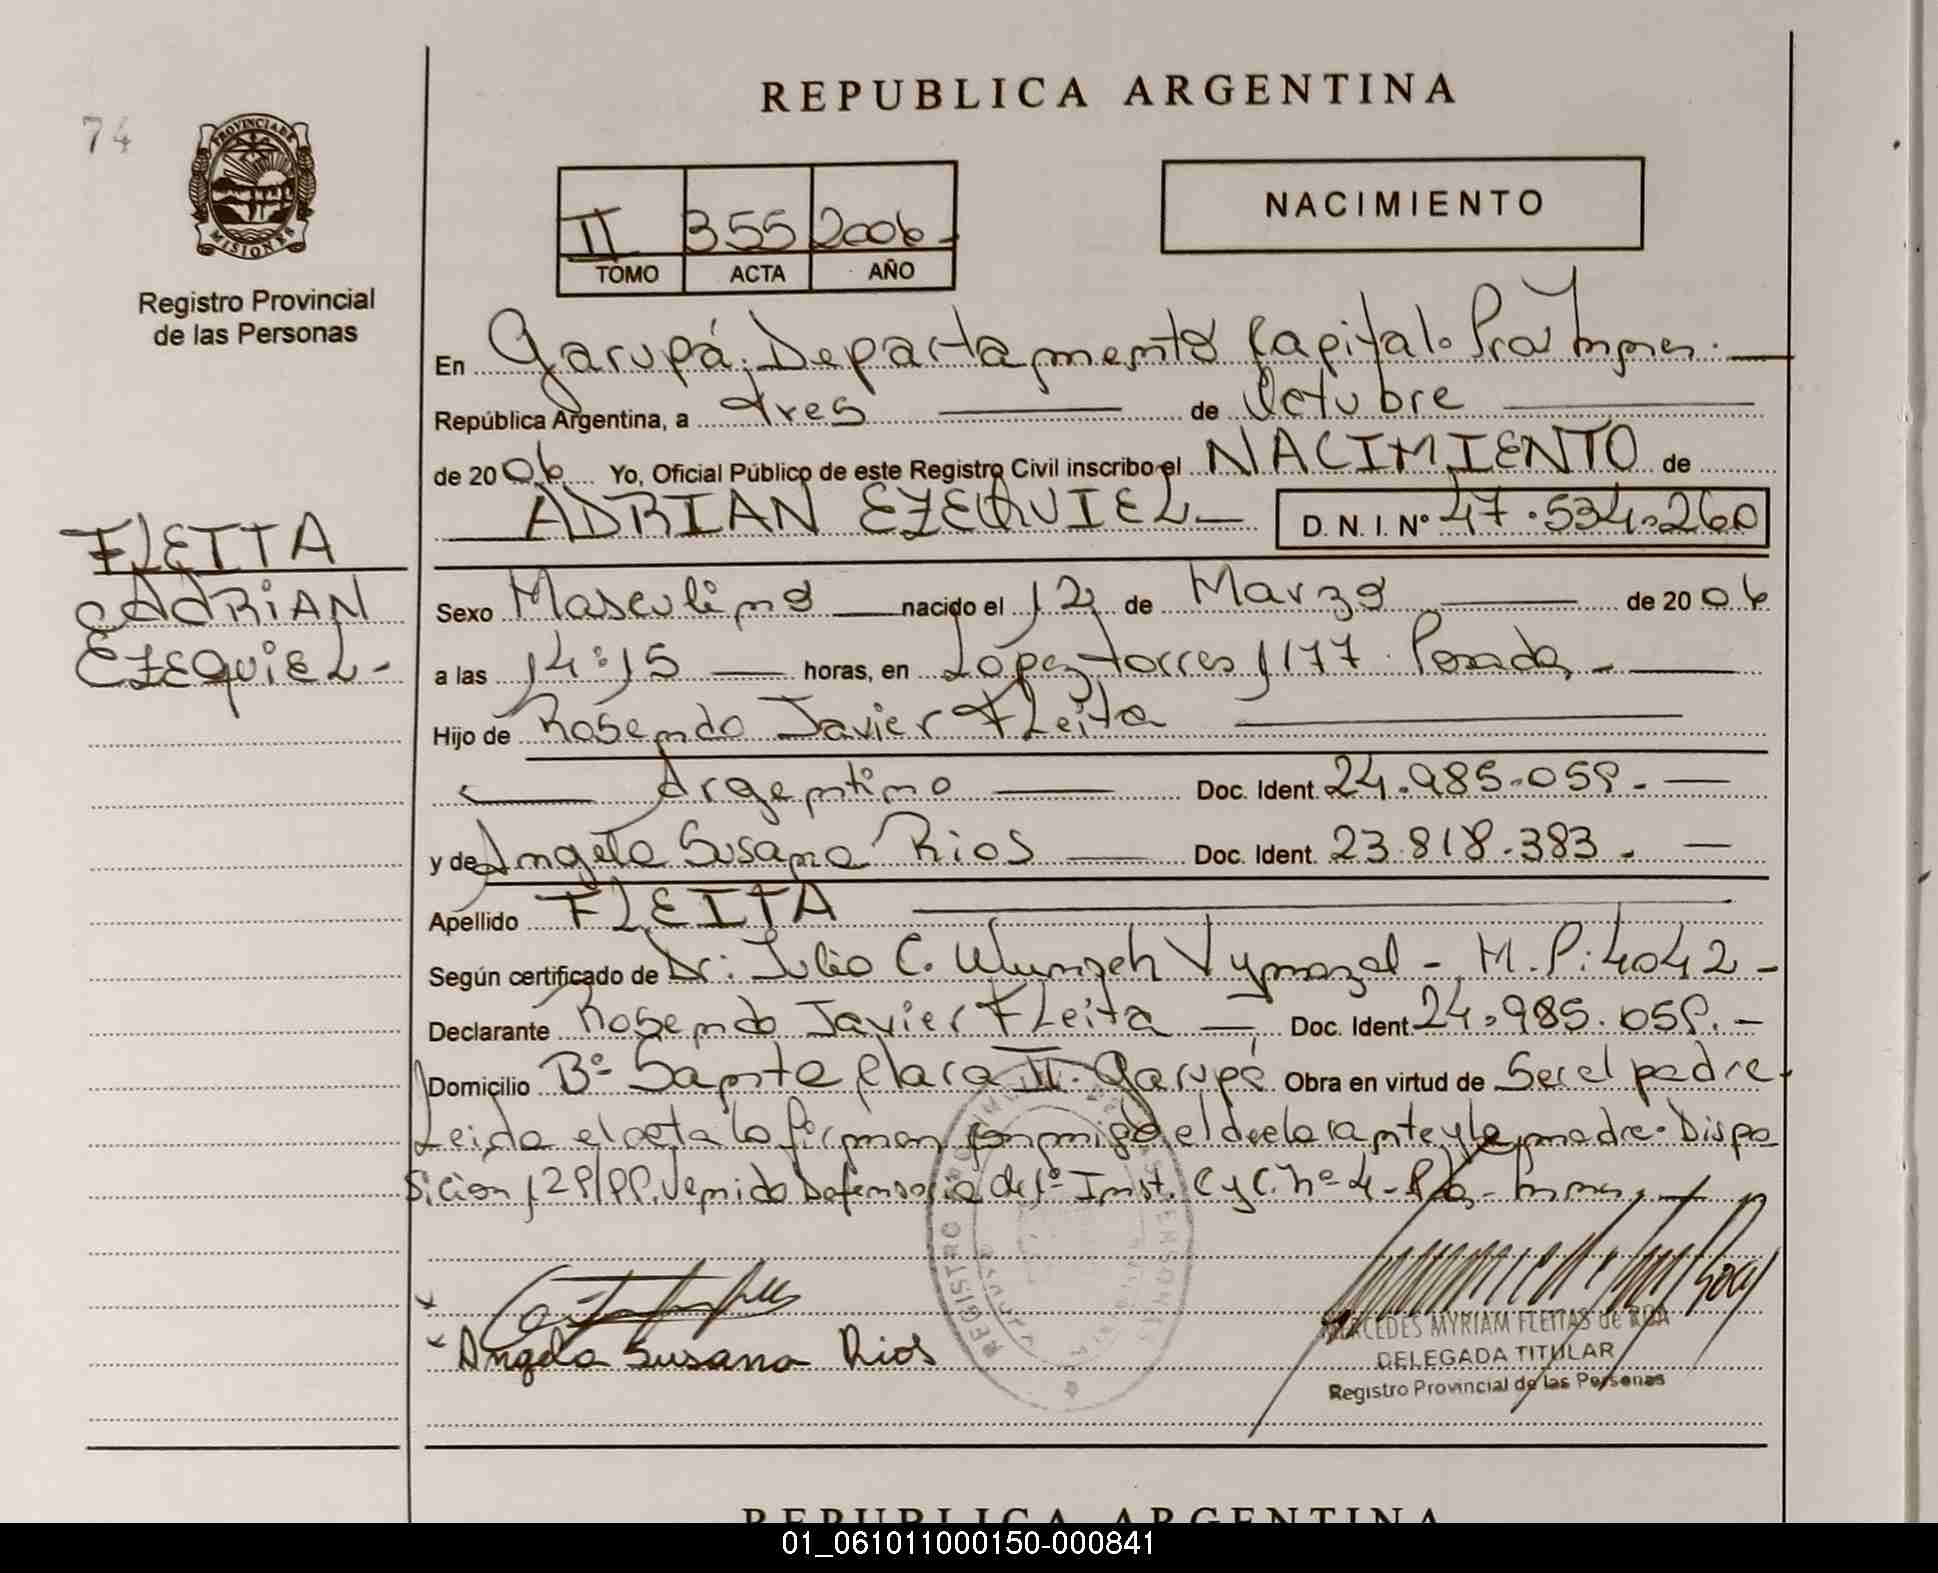 REPUBLICA ARGENTINA
74
PROVINCIA DE
MISIONES
Registro Provincial
de las Personas
II 355 2006-
TOMO ACTA AÑO
NACIMIENTO
En Garupá. Departamento Capital.
República Argentina, a tres de Octubre
de 2006 Yo, Oficial Público de este Registro Civil inscribo el NACIMIENTO de
ADRIAN EZEQUIEL- D. N. I. Nº 47.534.260
FLEITA
ADRIAN
EZEQUIEL-
Sexo Masculino nacido el 12 de Marzo de 2006
a las 14:15 horas, en López torres 1177. Posadas-
Hijo de Rosendo Javier Fleita
Argentino Doc. Ident. 24.985.059.-
y de Angela Susana Rios Doc. Ident. 23.818.383.-
Apellido FLEITA
Según certificado de Dr: Julio C. Vymazal - M.P: 4042-
Declarante Rosendo Javier Fleita Doc. Ident. 24.985.059.-
Domicilio Bº Santa Clara II. Garupá Obra en virtud de Ser el padre-
Leida el acta la firman conmigo el declarante y la madre. Dispo
sicion Defensoria de 1º Inst. C y C. Nº 4-
Angela Susana Rios
MERCEDES MYRIAM FLEITAS de ROA
DELEGADA TITULAR
Registro Provincial de las Personas
REPUBLICA ARGENTINA
01_061011000150-000841